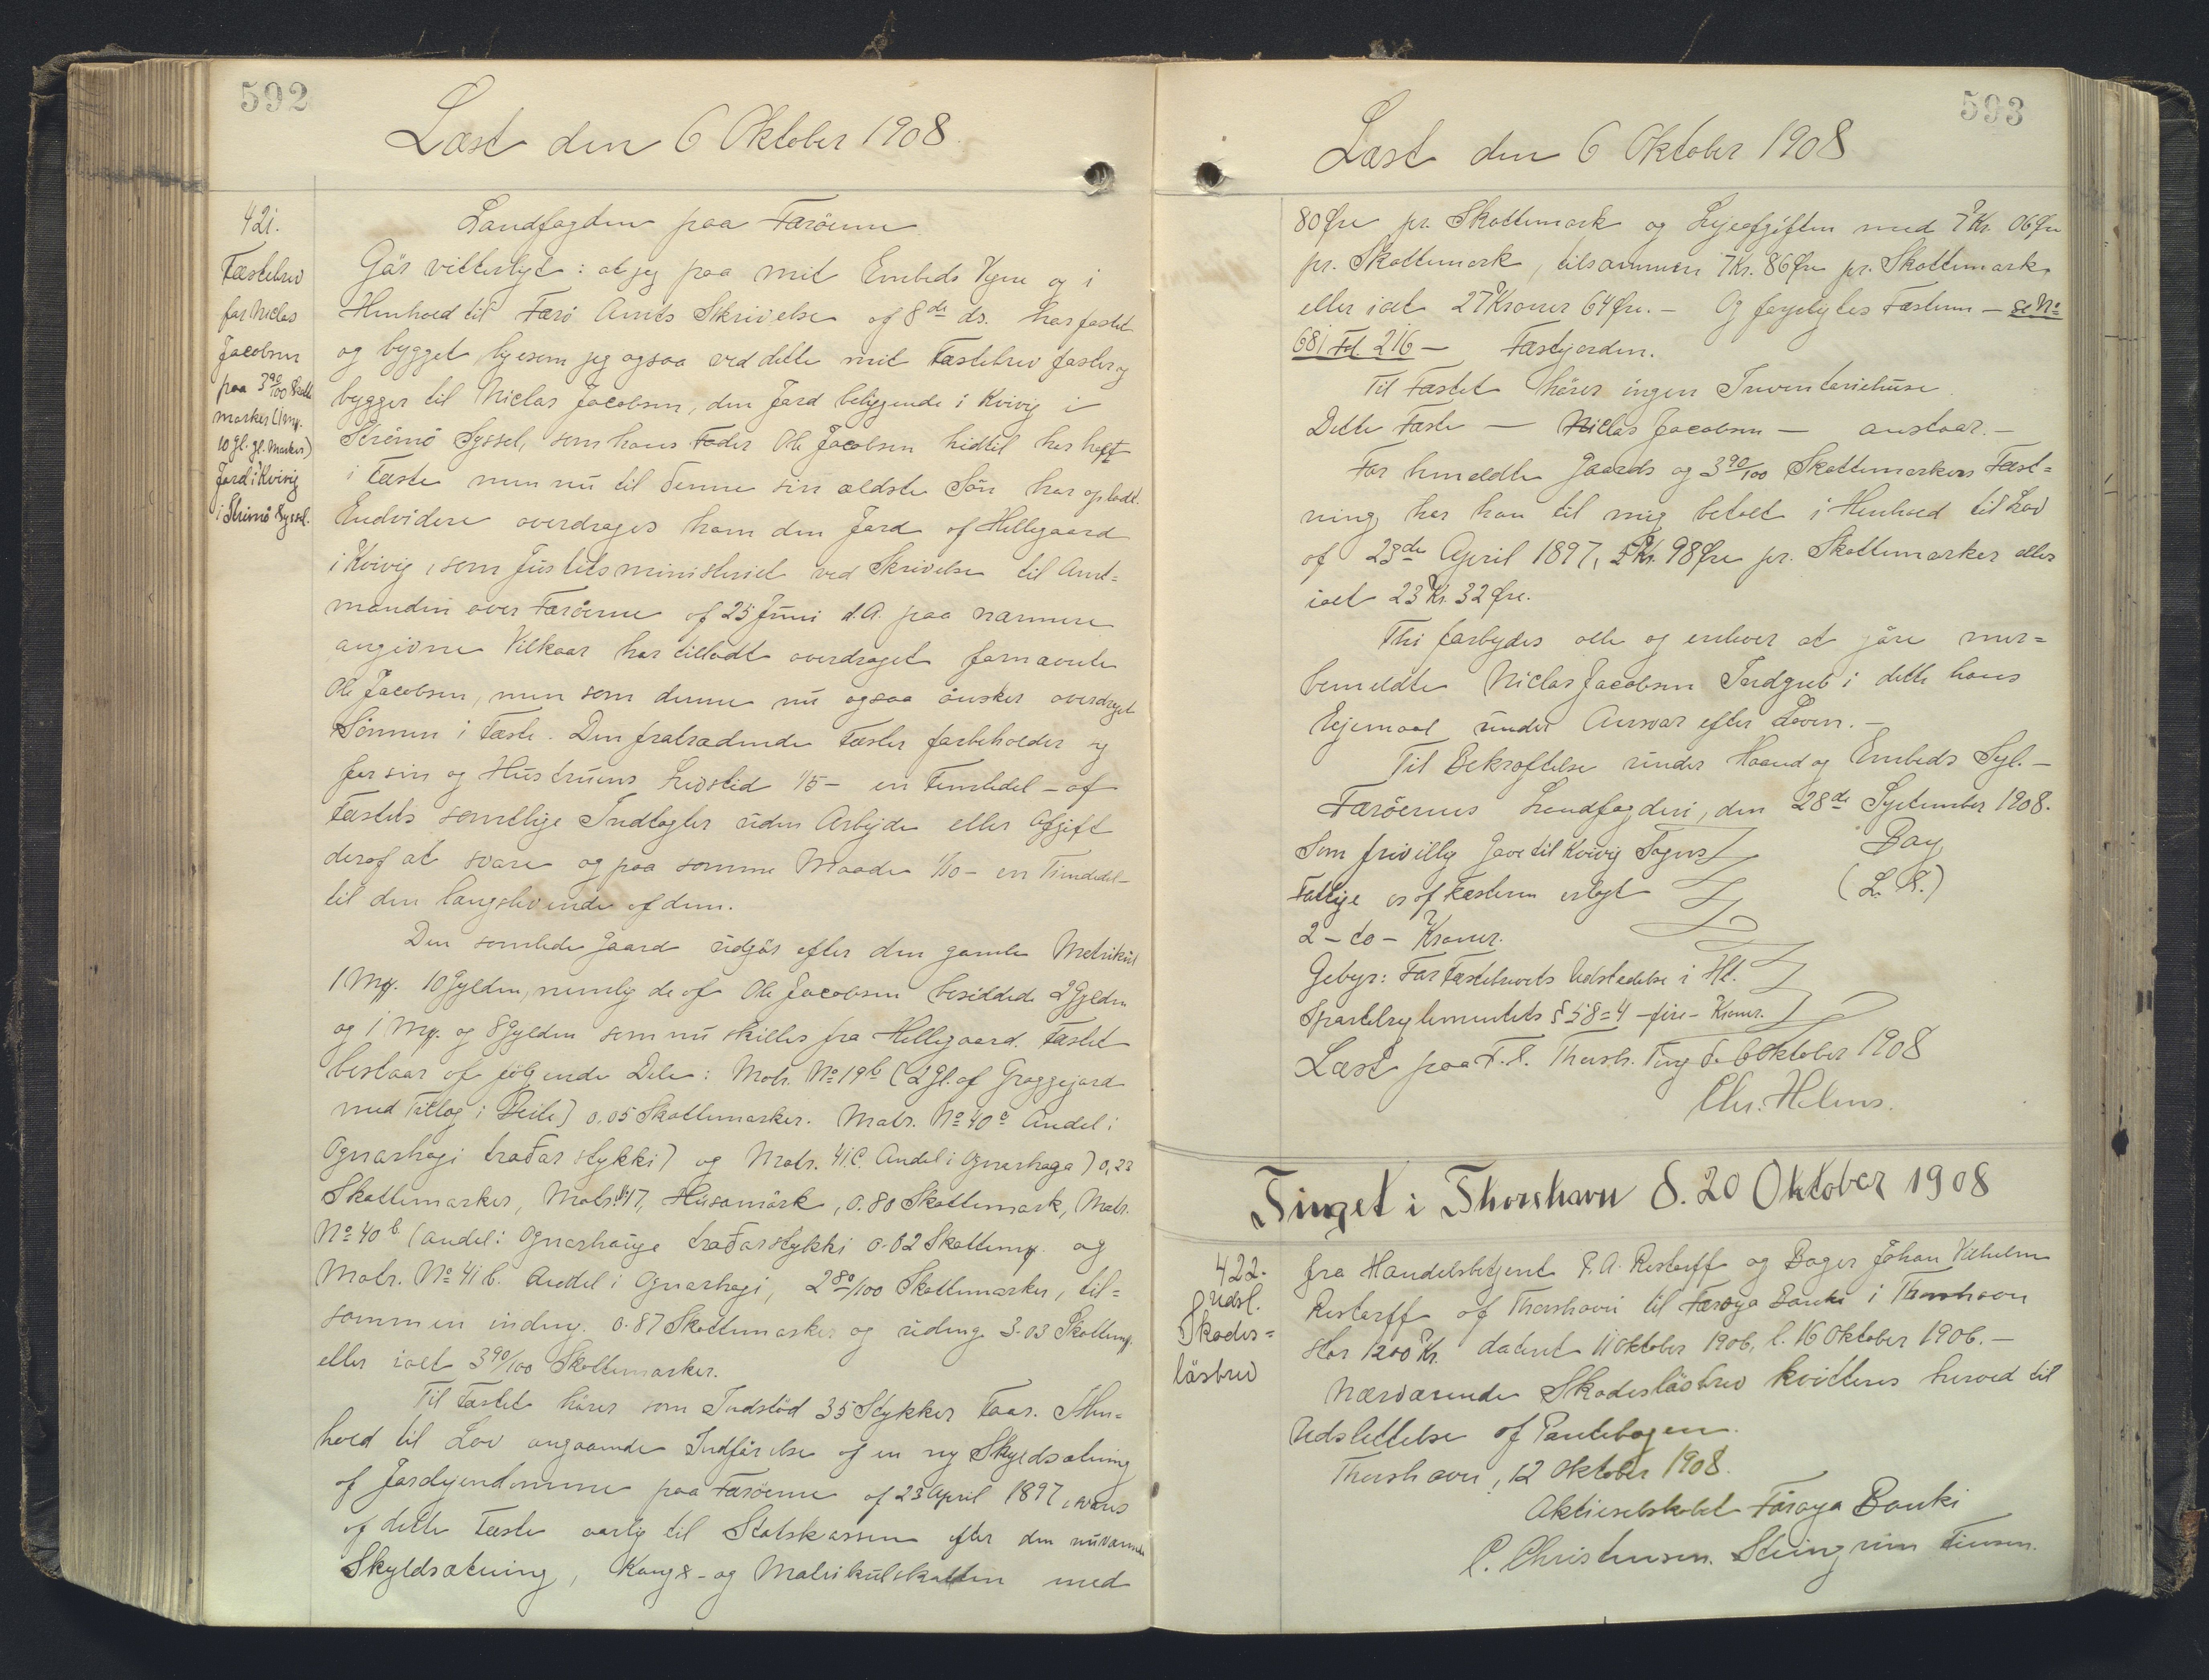 592
Læst den 6 Oktober 1908.
421.
Fæstebrev
for Niclas
Jacobsen
paa 3 90/100 Skatte
marker (1 mp.
10 gl. gl. Marker)
Jord i Kvivig
i Strömö Syssel.
Landfogden paa Færöerne
Gör vitterligt: at jeg paa mit Embeds Vegne og i
Henhold til Færö Amts Skrivelse af 8de ds. har fæstet
og bygget ligesom jeg ogsaa ved dette mit Fæstebrev fæster og
bygger til Niclas Jacobsen, den Jord beliggende i Kvivig i
Strömö Syssel, som hans Fader Ole Jacobsen hidtil har haft
i Fæste men nu til denne sin ældste Sön har opladt.
Endvidere overdrages ham den Jord af Hellegaard
i Kvivig, som Justitsministeriet ved Skrivelse til Amt=
manden over Færöerne af 25 Juni d.A. paa nærmere
angivne Vilkaar har tilladt overdraget fornævnte
Ole Jacobsen, men som denne nu ogsaa önsker overdraget
Sönnen i Fæste. Den fratrædende Fæster forbeholder sig
for sin og Hustruens Livstid 1/5 - en Femtedel - af
Fæstets samtlige Indtægter uden Arbejde eller Afgift
deraf at svare og paa samme Maade 1/10 - en Tiendedel -
til den længstlevende af dem.
Den samlede Gaard udgör efter den gamle Matrikul
1 Mp. 10 Gylden, nemlig de af Ole Jacobsen besiddede 2 Gylden
og 1 Mp. og 8 Gylden som nu skilles fra Hellegaard. Fæstet
bestaar af fölgende Dele: Matr. No 19b (2 Gl. af Groggejord
med Tillæg i Beite) 0.05 Skattemarker. Matr. No 40c Andel i
Ognarhagi traðar stykki) og Matr. 41.C. Andel i Ognarhaga) 0,23
Skattemarker, Matr. No 17, Húsamörk, 0.80 Skattemark, Matr.
No 40b (andel i Ognarhauge traðarstykki 0.02 Skattemp. og
Matr. No 41b. Andel i Ognarhagi, 2 80/100 Skattemarker, til=
sammen indmg. 0.87 Skattemarker og udmg. 3.03 Skattemp.
eller ialt 3 90/100 Skattemarker.
Til Fæstet hörer som Indstöd 35 Stykker Faar. I Hen=
hold til Lov angaaende Indförelse af en ny Skyldsætning
af Jordejendomme paa Færöerne af 23 April 1897, svares
af dette Fæste aarlig til Statskassen efter den nuværende
Skyldsætning, Kongs- og Matrikulskatten med
593
Læst den 6 Oktober 1908
80 Øre pr. Skattemark og Lejeafgiften med 7 Kr. 06 Øre
pr. Skattemark, tilsammen 7 Kr. 86 Øre pr. Skattemark
eller ialt 27 Kroner 64 Øre. - Og forpligtes Fæsteren - se No
681 Fol. 216 - Fæstejorden.
Til Fæstet hörer ingen Inventariehuse.
Dette Fæste - Niclas Jacobsen - anstaar. -
For bemeldte Gaards og 3 90/100 Skattemarkers Fæst=
ning har han til mig betalt i Henhold til Lov
af 23de April 1897, 5 Kr. 98 Øre pr. Skattemarker eller
ialt 23 Kr. 32 Øre.
Thi forbydes alle og enhver at göre mer=
bemeldte Niclas Jacobsen Indgreb i dette hans
Lejemaal under Ansvar efter Loven. -
Til Bekræftelse under Haand og Embeds Segl. -
Færöernes Landfogderi, den 28de September 1908.
Bay
(L. S.)
Som frivillig Gave til Kvivig Sogns
Fattige er af Fæsteren erlagt
2 - to - Kroner.
Gebyr: For Fæstebrevets Udstedelse i Ht.
Sportelreglementets § 58 = 4 - fire - Kroner.
Læst paa F. S. Thorsh. Ting d. 6 Oktober 1908
Chr. Helms.
Tinget i Thorshavn d. 20 Oktober 1908
422.
Udsl.
Skades=
lösbrev
fra Handelsbetjent P. A. Restorff og Bager Johan Vilhelm
Restorff af Thorshavn til Færoya Banki i Thorshavn
stor 1200 Kr. dateret 11 Oktober 1906, l. 16 Oktober 1906. -
Nærværende Skadeslösbrev kvitteres herved til
Udslettelse af Pantebogen.
Thorshavn, 12 Oktober 1908.
Aktieselskabet Föroya Banki
C. Christensen. Steingrim Finsen.